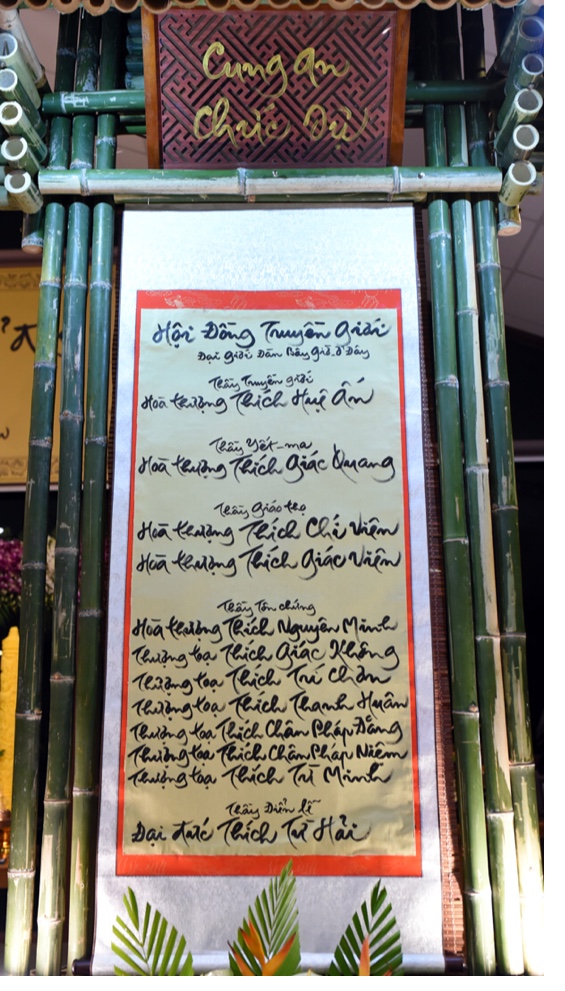 Cung an
Chức Sự
Hội Đồng Truyền Giới
Đại Giới Đàn Bây Giờ Ở Đây
Thầy Truyền giới
Hoà thượng Thích Huệ Ấn
Thầy Yết-ma
Hoà thượng Thích Giác Quang
Thầy Giáo thọ
Hoà thượng Thích Chí Viên
Hoà thượng Thích Giác Viên
Thầy Tôn chứng
Hoà thượng Thích Nguyên Minh
Thượng toạ Thích Giác Không
Thượng toạ Thích Trí Chơn
Thượng toạ Thích Thanh Huân
Thượng toạ Thích Chân Pháp Đăng
Thượng toạ Thích Chân Pháp Niệm
Thượng toạ Thích Trí Minh
Thầy Điển lễ
Đại đức Thích Từ Hải